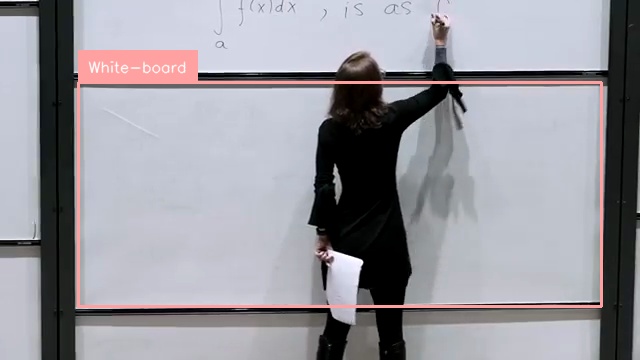 ∫ f(x)dx , is as
a
White-board